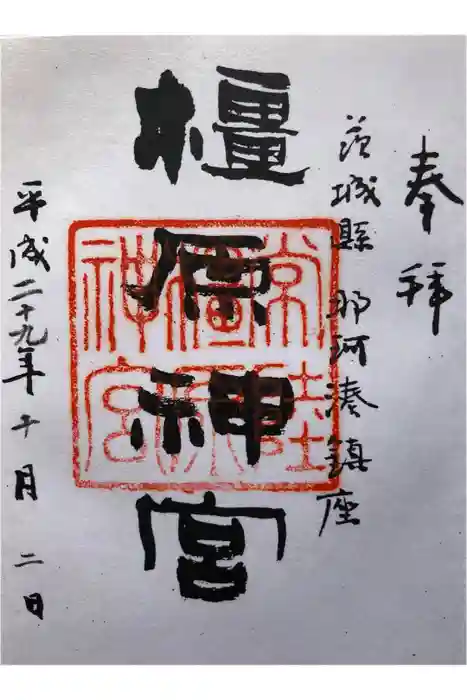 奉拝
茨城縣 那珂湊鎮座
橿原神宮
平成二十九年十月二日
橿原
神宮